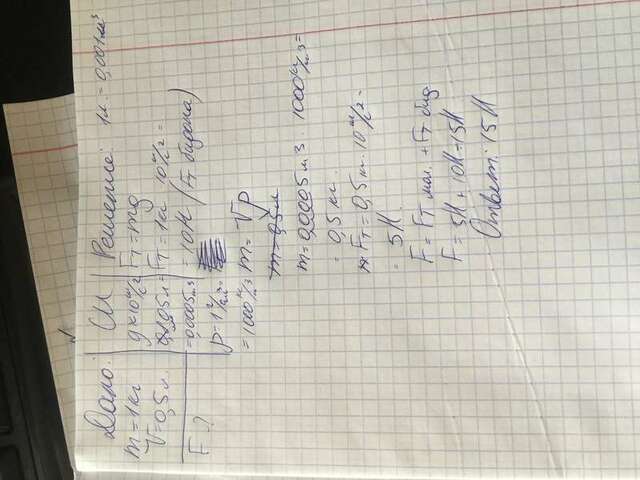 Дано:
m = 1 кг
V = 0,5 л.
F - ?
СИ
g ≈ 10 м/с2
0,5 л =
= 0,0005 м3
ρ = 1 г/см3 =
= 1000 кг/м3
Решение: 1 л = 0,001 м³
Fт = mg
Fт = 1 кг · 10 м/с2 =
= 10 Н (Fт бидона)
m = Vρ
m = 0,5 л
m = 0,0005 м3 · 1000 кг/м3 =
= 0,5 кг.
Fт = 0,5 кг · 10 м/с2 =
= 5 Н.
F = Fт мол. + Fт бид
F = 5Н + 10Н = 15Н
Ответ: 15 Н